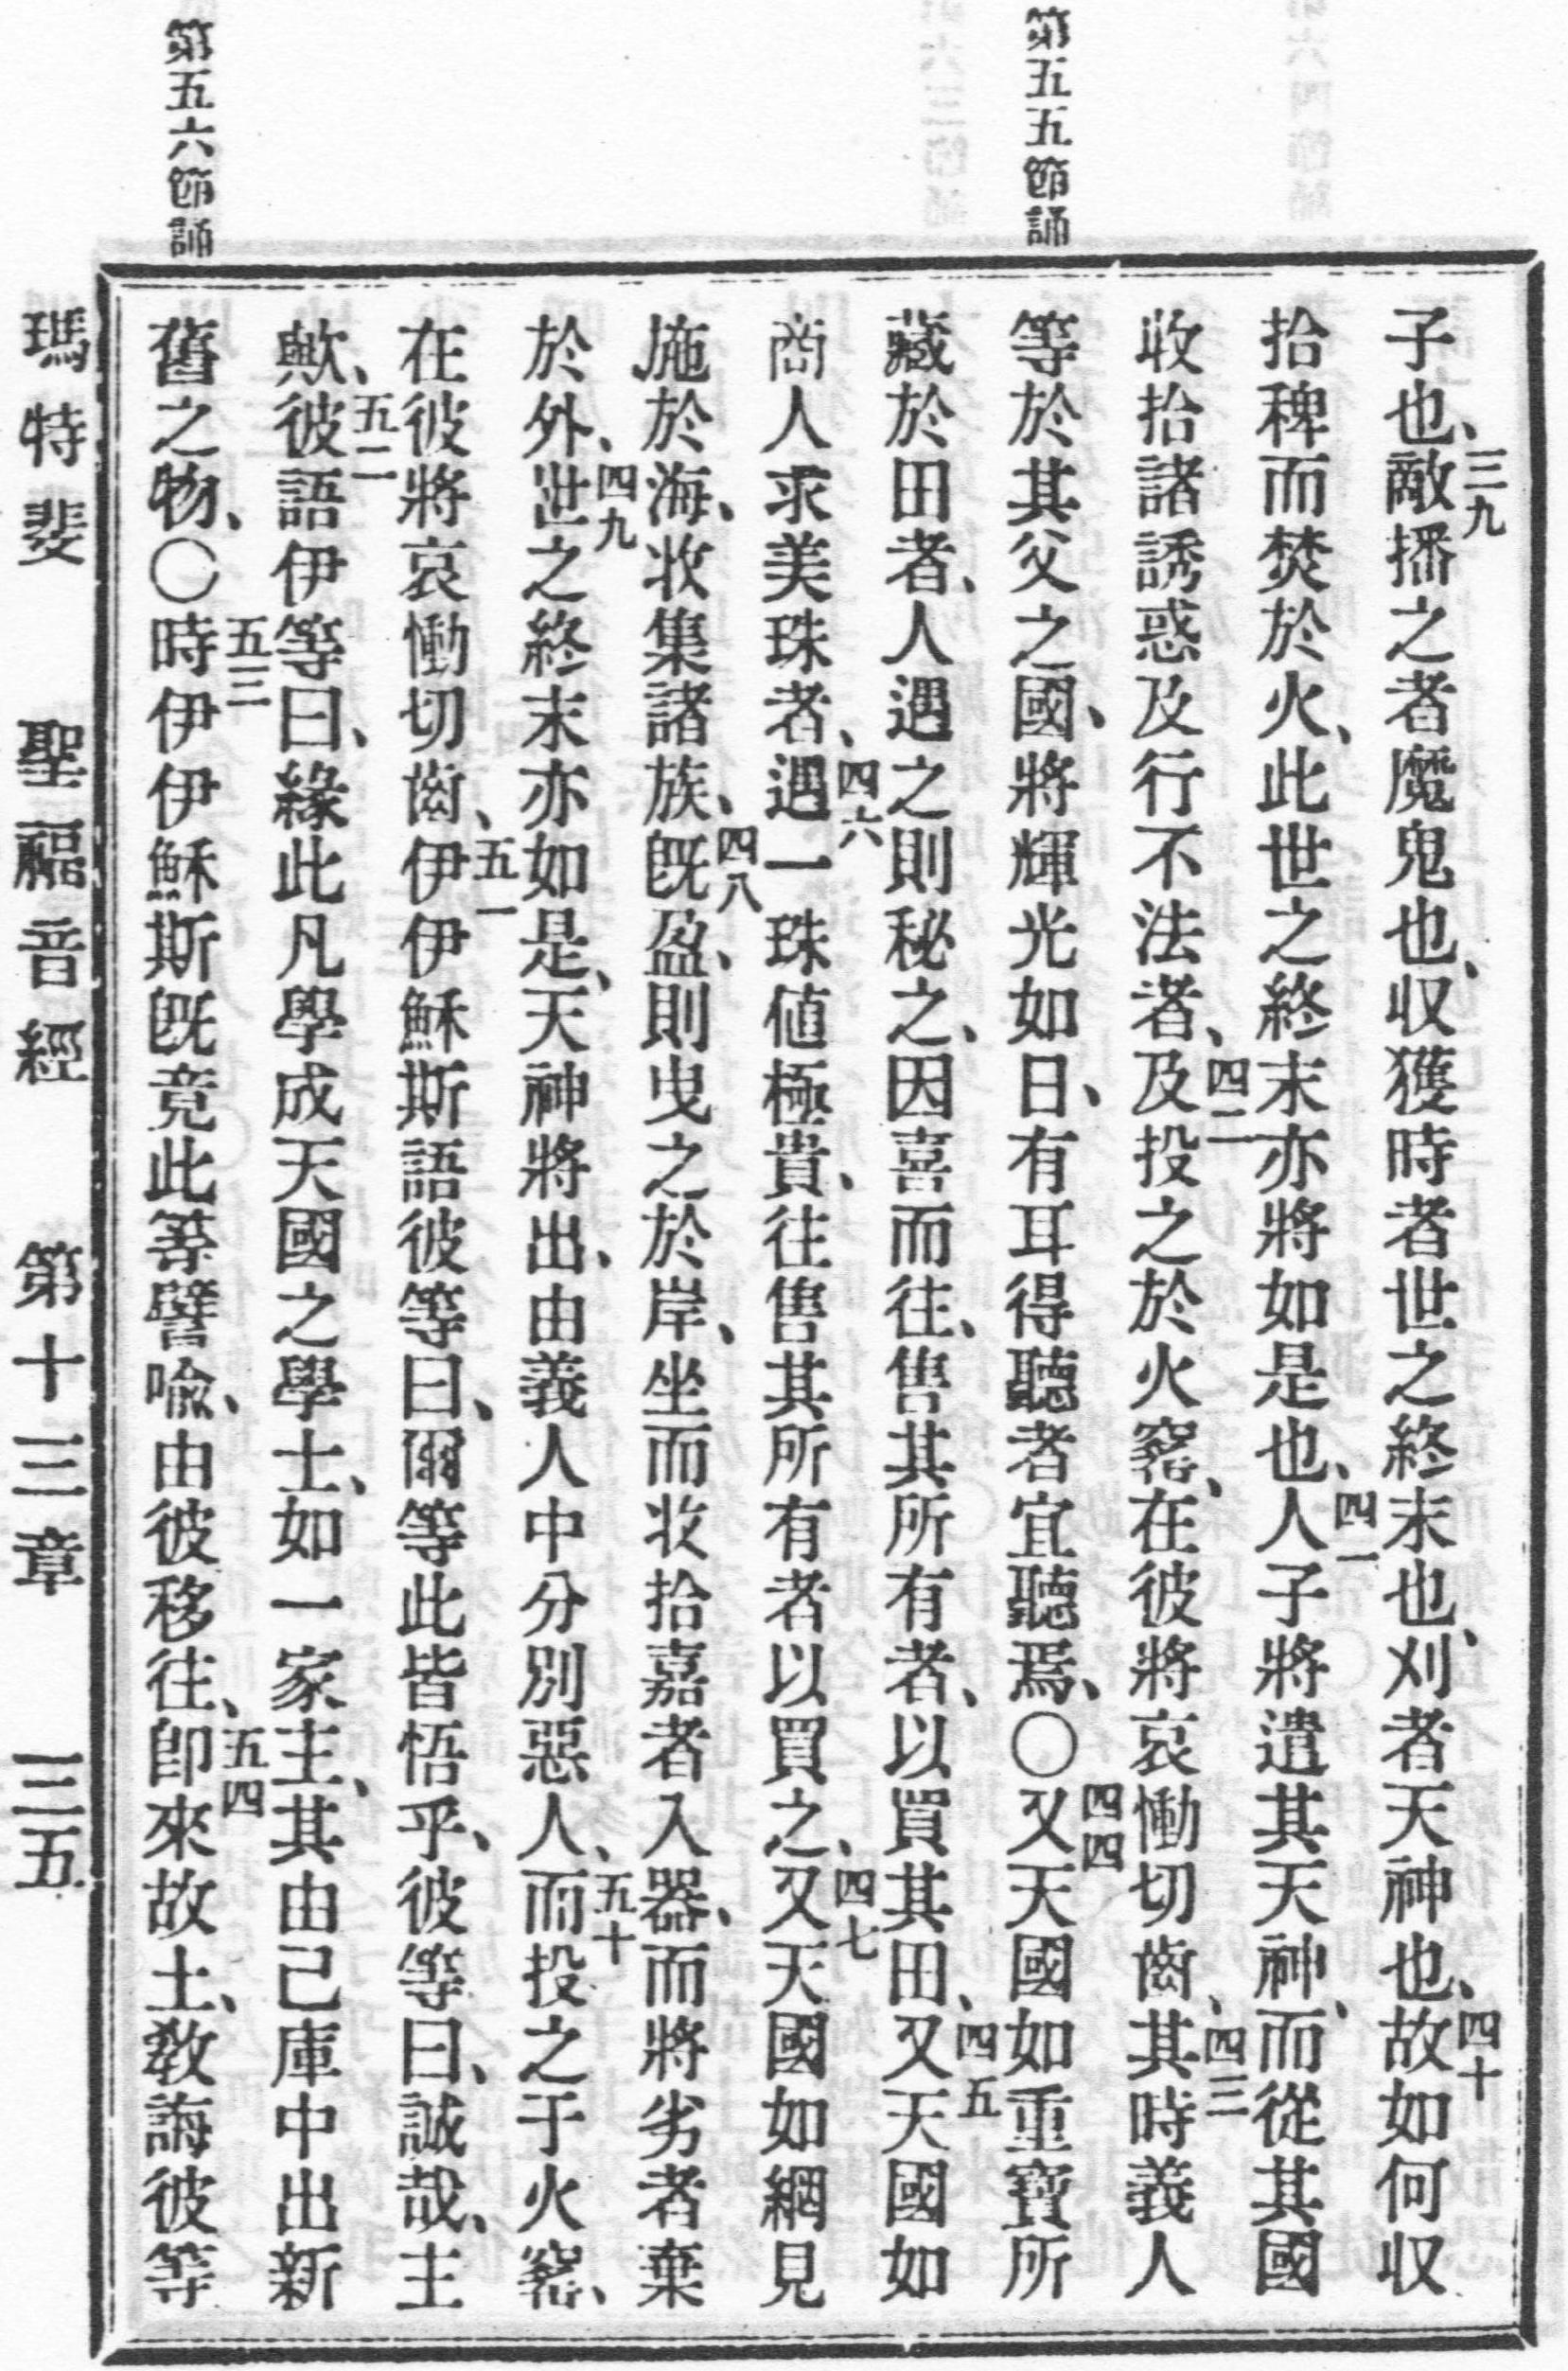 第五五節誦
第五六節誦
子也、三九敵播之者魔鬼也、収獲時者世之終末也、刈者天神也、四十故如何収
拾稗而焚於火、此世之終末亦將如是也、四一人子將遣其天神、而從其國
收拾諸誘惑及行不法者、四二及投之於火窰、在彼將哀慟切齒、四三其時義人
等於其父之國、將輝光如日、有耳得聽者宜聽焉、〇四四又天國如重寶所
藏於田者、人遇之則秘之、因喜而往、售其所有者、以買其田、四五又天國如
商人求美珠者、四六遇一珠値極貴、往售其所有者以買之、四七又天國如網見
施於海、收集諸族、四八旣盈、則曳之於岸、坐而收拾嘉者入器、而將劣者棄
於外、四九世之終末亦如是、天神將出、由義人中分別惡人、五十而投之于火窰、
在彼將哀慟切齒、五一伊伊穌斯語彼等曰、爾等此皆悟乎、彼等曰、誠哉、主
歟、五二彼語伊等曰、緣此凡學成天國之學士、如一家主、其由己庫中出新
舊之物、〇五三時伊伊穌斯旣竟此等譬喩、由彼移往、五四卽來故土、敎誨彼等
瑪特斐 聖福音經 第十三章 三五